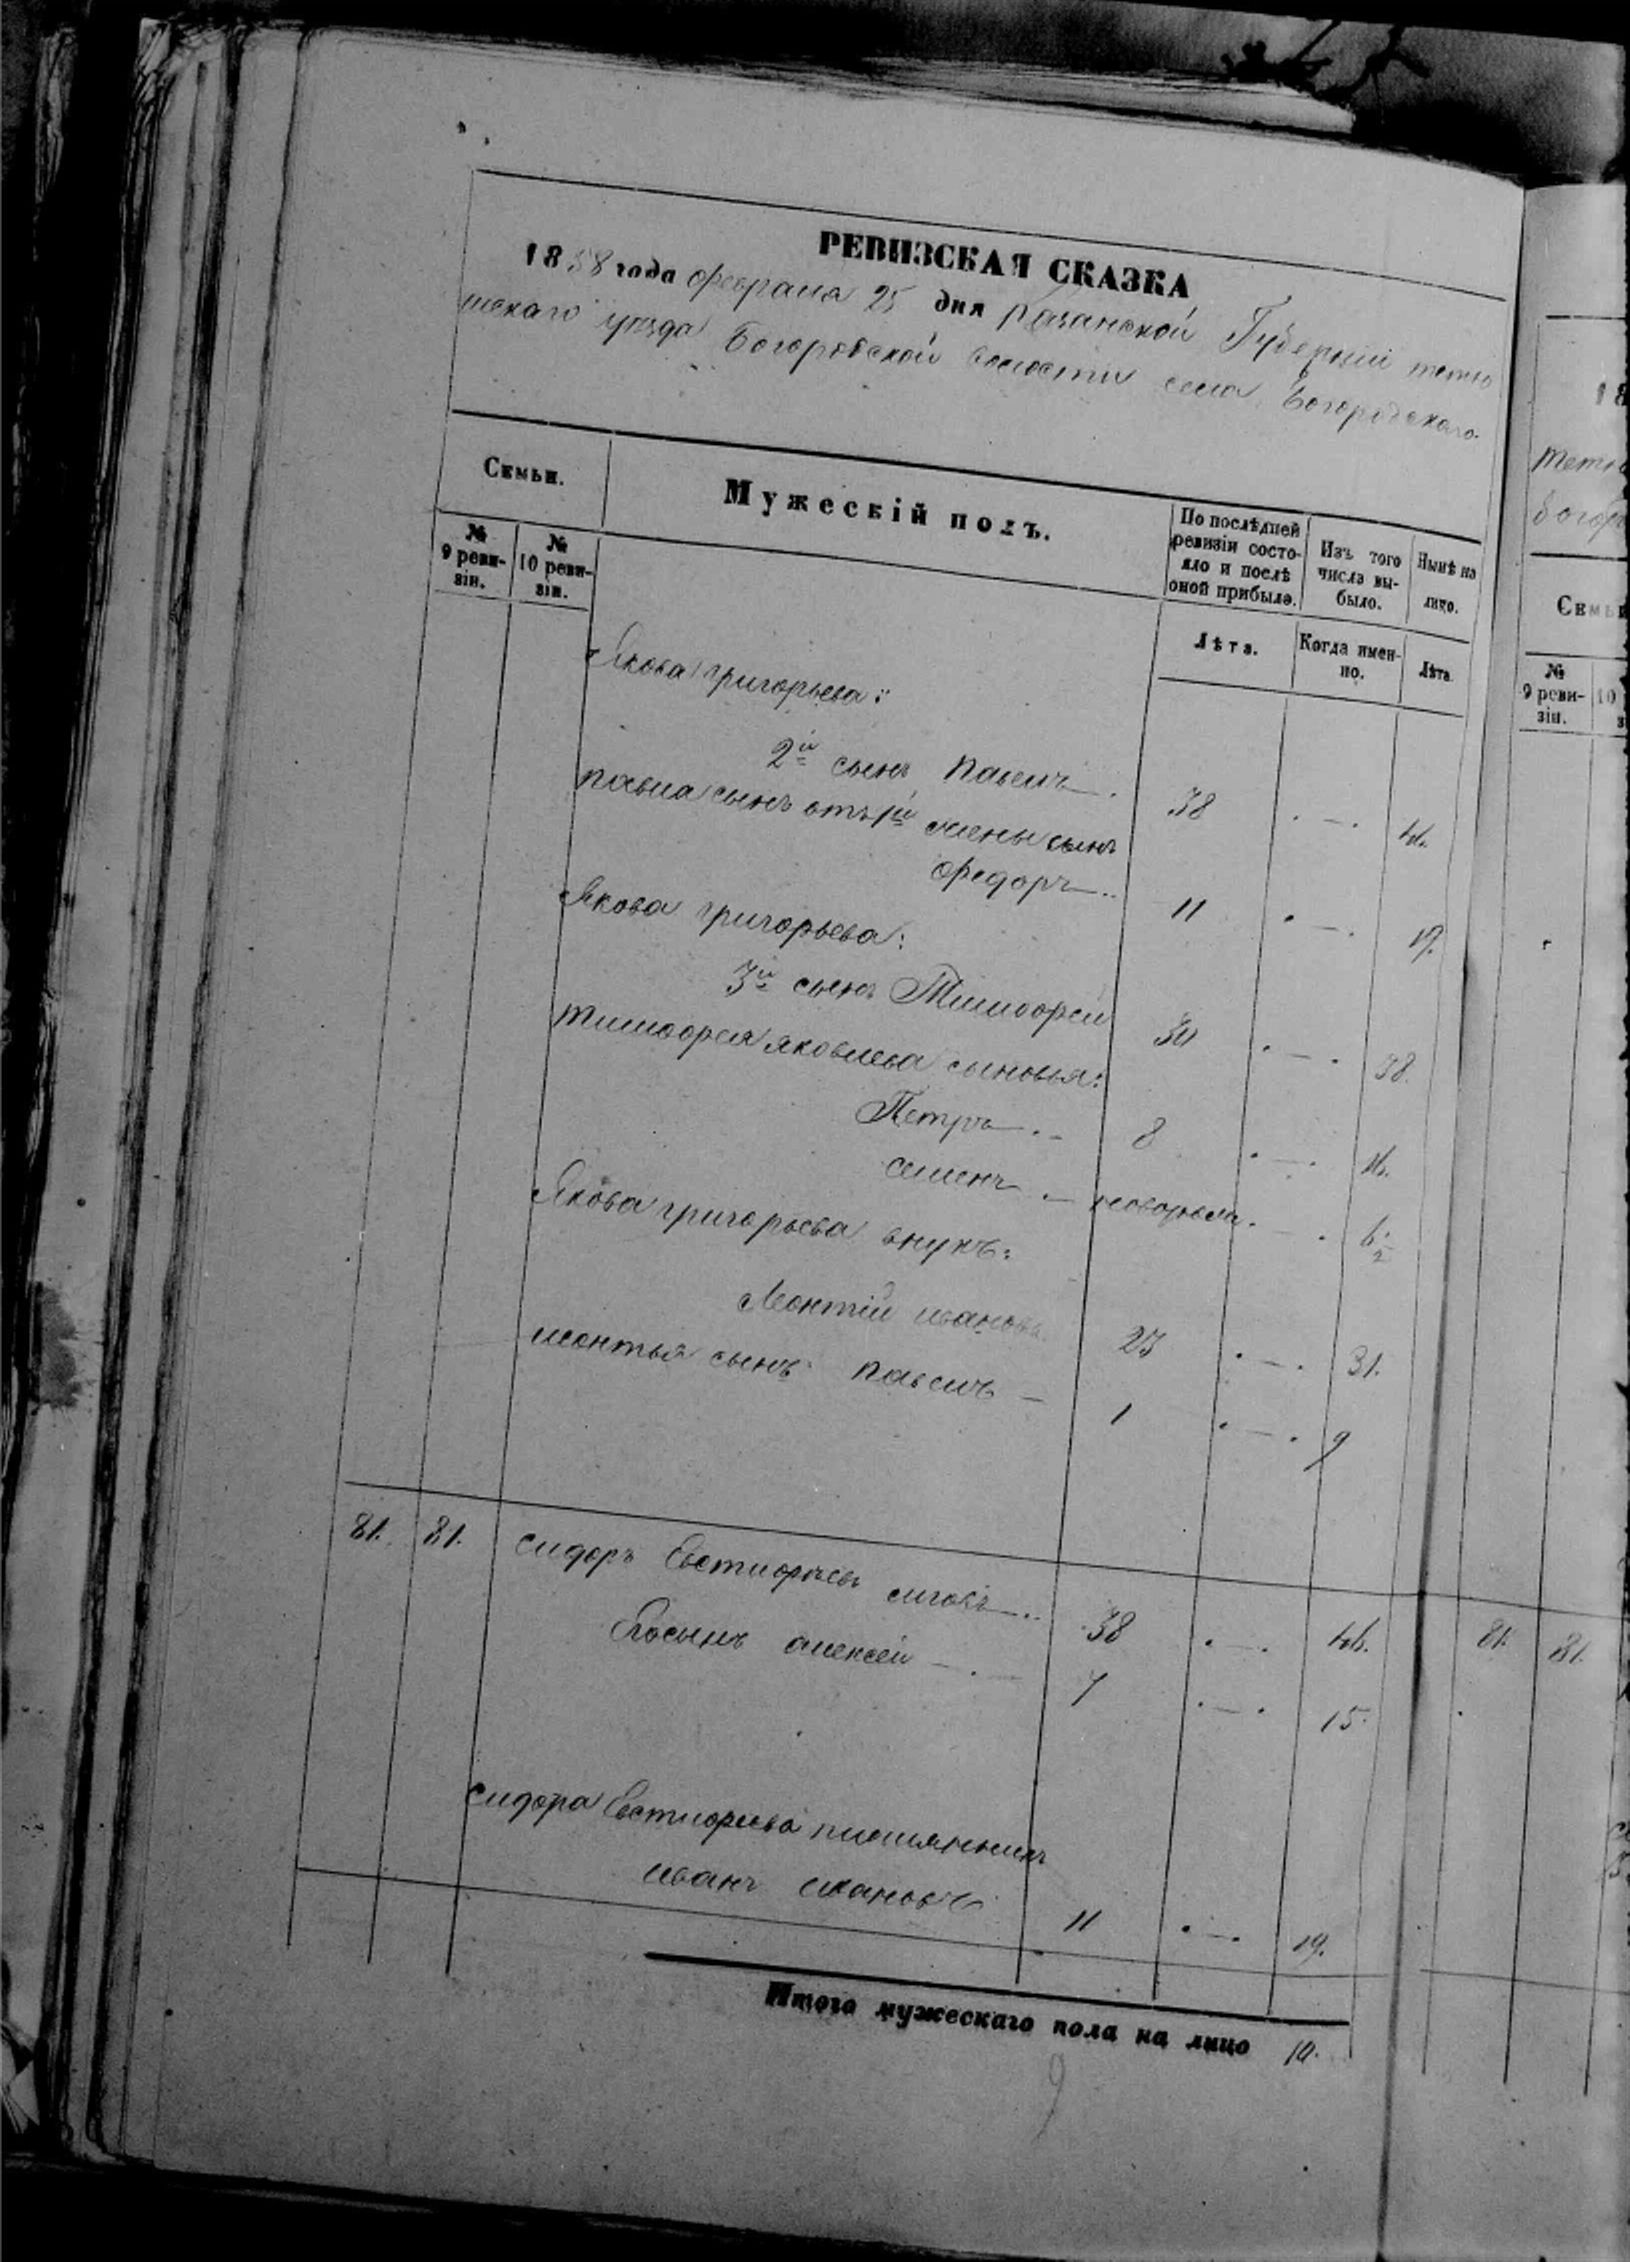 РЕВИЗСКАЯ СКАЗКА
1858 года февраля 25 дня Казанской Губерніи тетю
шскаго уезда Богородской волости села Богородскаго
Семьи.
Мужескій полъ.
По послѣдней ревизіи состояло и послѣ оной прибыло.
Изъ того числа выбыло.
Нынѣ на лицо.
№ 9 ревизіи.
№ 10 ревизіи.
Лѣта.
Когда именно.
Лѣта.
Якова григорьева:
2й сынъ павелъ 38 46.
павла сынъ отъ 1й жены сынъ
Федоръ 11 19.
Якова григорьева:
3й сынъ Тимофей 30 38.
тимофея яковлева сыновья:
Петръ 8 16.
семенъ 6 1/2
Якова григорьева внукъ:
Леонтій ивановъ 23 31.
леонтья сынъ павелъ 1 9
81. 81. сидоръ Евстифѣевъ 38 46.
Егосынъ алексей 7 15.
сидора Евстифеева племянникъ
иванъ 11 19.
Итого мужескаго пола на лицо 10.
9
18
тетю
Богор
Семьи
№ 9 ревизіи.
10
81. 81.